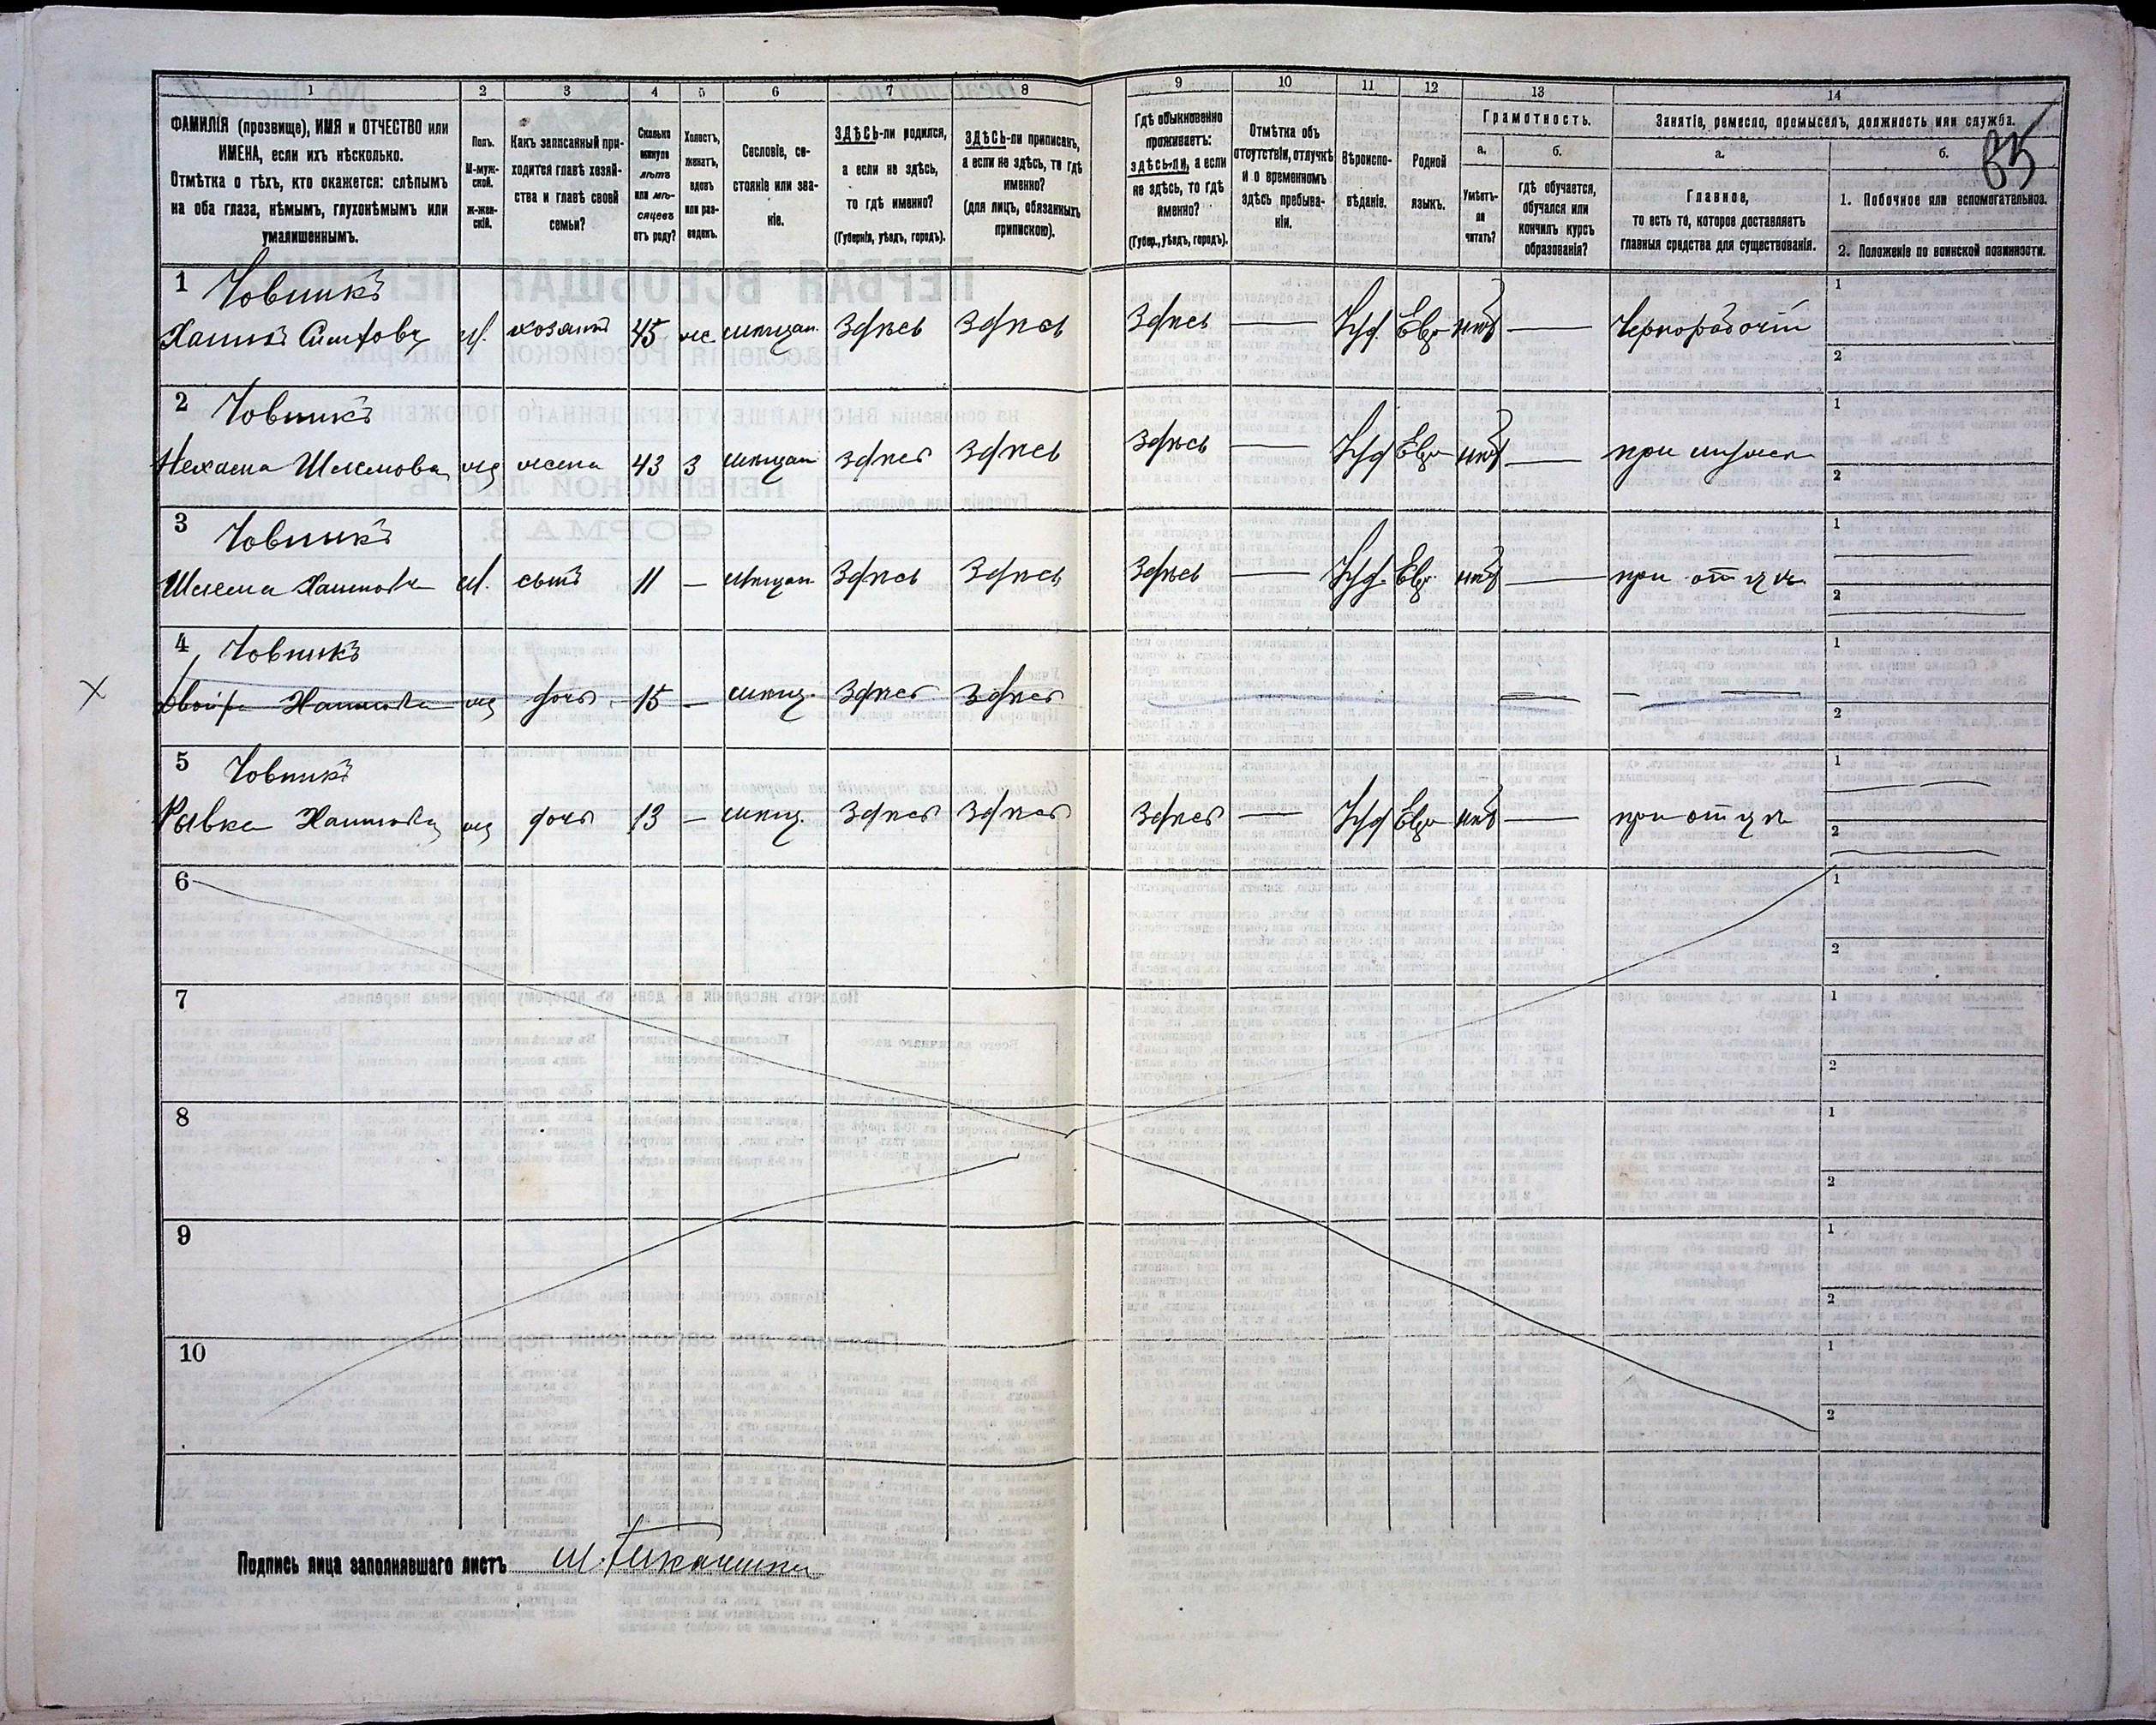 65
1 2 3 4 5 6 7 8 9 10 11 12 13 14
ФАМИЛІЯ (прозвище), ИМЯ и ОТЧЕСТВО или
ИМЕНА, если ихъ нѣсколько.
Отмѣтка о тѣхъ, кто окажется: слѣпымъ
на оба глаза, нѣмымъ, глухонѣмымъ или
умалишеннымъ.
Полъ.
М-муж-
ской.
Ж-жен-
скій.
Какъ записанный при-
ходится главѣ хозяй-
ства и главѣ своей
семьи?
Сколько
минуло
лѣтъ
или мѣ-
сяцевъ
отъ роду?
Холостъ,
женатъ,
вдовъ
или раз-
веденъ.
Сословіе, со-
стояніе или зва-
ніе.
ЗДѢСЬ-ли родился,
а если не здѣсь,
то гдѣ именно?
(Губернія, уѣздъ, городъ).
ЗДѢСЬ-ли приписанъ,
а если не здѣсь, то гдѣ
именно?
(для лицъ, обязанныхъ
припискою).
Гдѣ обыкновенно
проживаетъ:
здѣсь-ли, а если
не здѣсь, то гдѣ
именно?
(Губер., уѣздъ, городъ).
Отмѣтка объ
отсутствіи, отлучкѣ
и о временномъ
здѣсь пребыва-
ніи.
Вѣроиспо-
вѣданіе.
Родной
языкъ.
Грамотность.
а.
Умѣетъ-
ли
читать?
б.
гдѣ обучается,
обучался или
кончилъ курсъ
образованія?
Занятіе, ремесло, промыселъ, должность или служба.
а.
Главное,
то есть то, которое доставляетъ
главныя средства для существованія.
б.
1. Побочное или вспомогательное.
2. Положеніе по воинской повинности.
1 Човникъ
Хаимъ м. хозяинъ 45 же. мѣщан. Здѣсь Здѣсь Здѣсь — Іуд. Евр нѣт — Чернорабочій
1
2
2 Човникъ
Нехама Шлемова же жена 43 З мѣщан Здѣсь Здѣсь Здѣсь — Іуд Евр нѣт — при
1
2
3 Човникъ
Шлема Хаимовъ м. сынъ 11 — мѣщан Здѣсь Здѣсь Здѣсь — Іуд. Евр. нѣт — при отцѣ
1
2
4 Човникъ
Двойра Хаимова же дочь 15 — мѣщ. Здѣсь Здѣсь
1
2
5 Човникъ
Рывка Хаимова же дочь 13 — мѣщ. Здѣсь Здѣсь Здѣсь — Іуд Евр нѣт — при отцѣ
1
2
6
1
2
7
1
2
8
1
2
9
1
2
10
1
2
Подпись лица заполнявшаго листъ